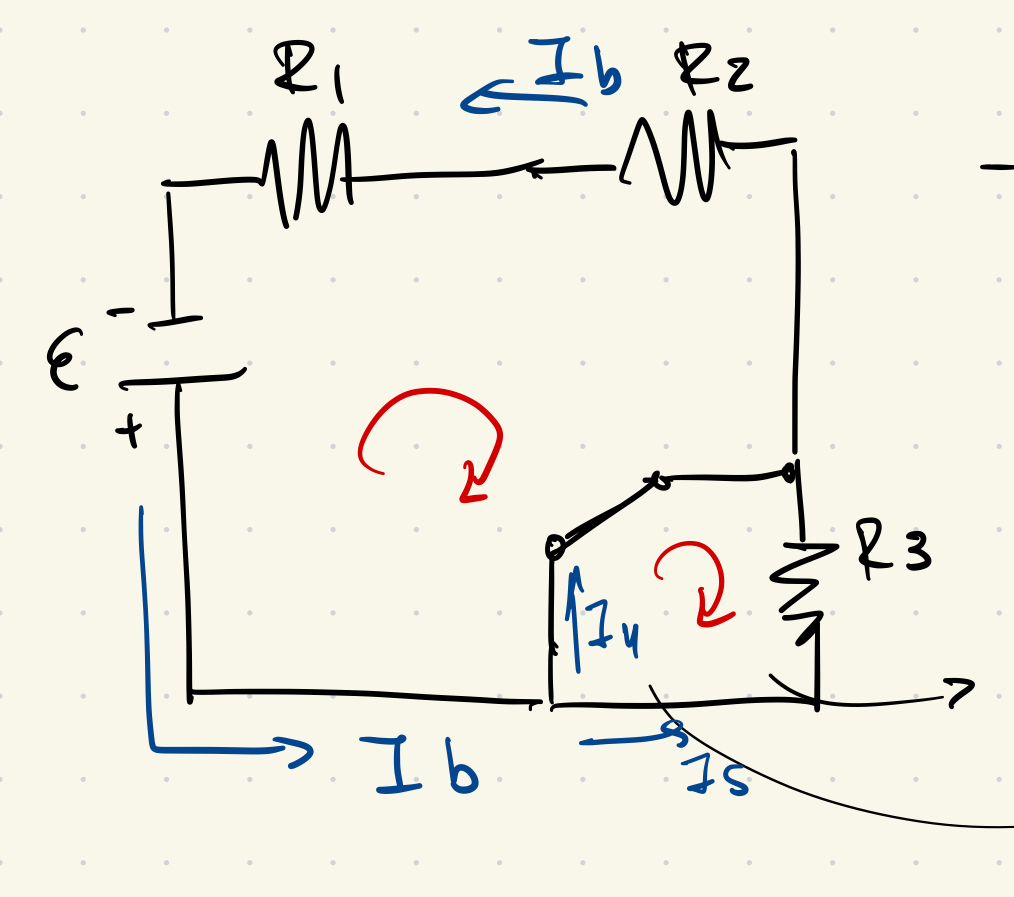 R1
Ib
R2
-
ε
+
R3
I4
Ib
I5